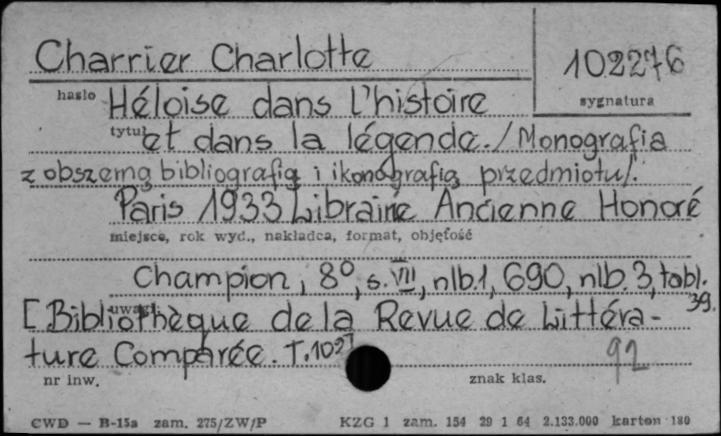 Charrier Charlotte
102276
hasło
sygnatura
Héloise dans l'histoire
tytuł
et dans la légende. /Monografia
z obszerną bibliografią i ikonografią przedmiotu/.
Paris 1933 Librairie Ancienne Honoré
miejsce, rok wyd., nakładca, format, objętość
Champion, 8°, s. VIII, nlb.1, 690, nlb. 3, tabl. 39.
uwagi
[Bibliothèque de la Revue de Littéra-
ture Comparée. T. 102]
92
nr inw.
znak klas.
CWD — B-15a zam. 275/ZW/P KZG 1 zam. 154 29 1 64 2.133.000 karton 180